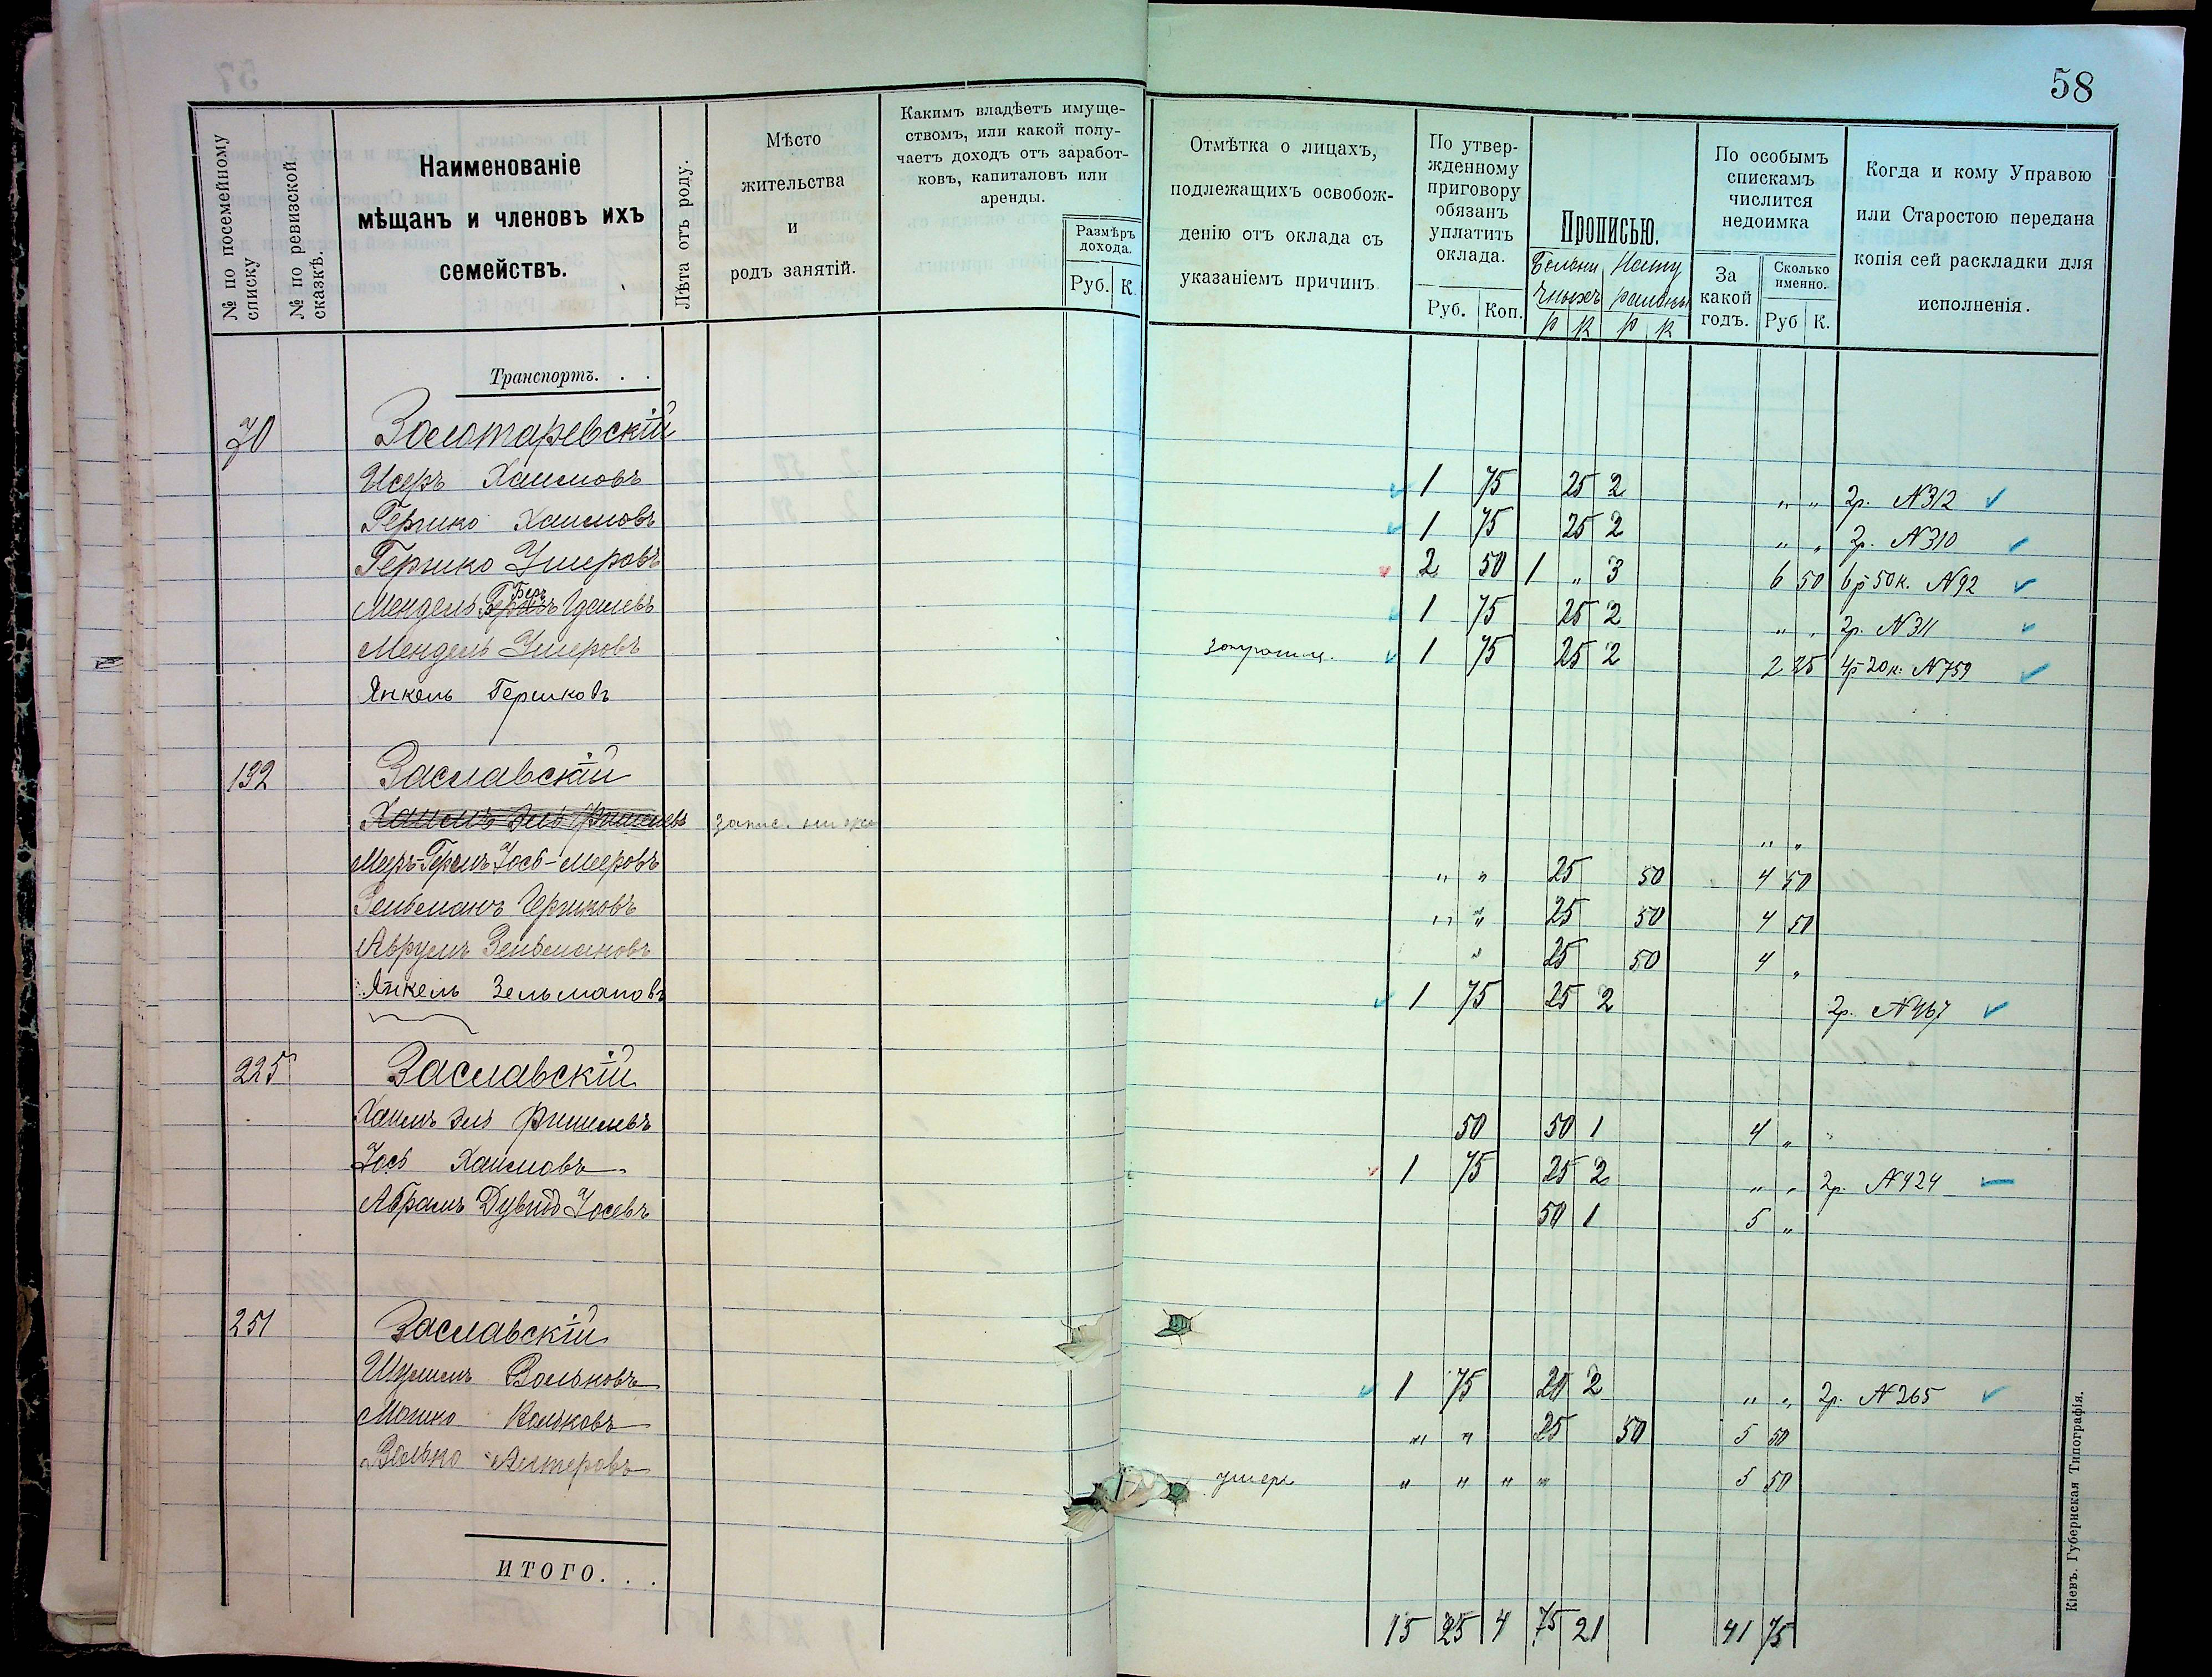 58
№ по посемейному списку
№ по ревизской сказкѣ.
Наименованіе
мѣщанъ и членовъ ихъ
семействъ.
Лѣта отъ роду.
Мѣсто
жительства
и
родъ занятій.
Какимъ владѣетъ имуще-
ствомъ, или какой полу-
чаетъ доходъ отъ заработ-
ковъ, капиталовъ или
аренды.
Размѣръ
дохода.
Руб. К.
Отмѣтка о лицахъ,
подлежащихъ освобож-
денію отъ оклада съ
указаніемъ причинъ
По утвер-
жденному
приговору
обязанъ
уплатить
оклада.
Руб. Коп.
Прописью.
р к р к
По особымъ
спискамъ
числится
недоимка
За
какой
годъ.
Сколько
именно.
Руб К.
Когда и кому Управою
или Старостою передана
копія сей раскладки для
исполненія.
Транспортъ. . .
70 Золотаревскій
Исеръ Хаимовъ 1 75 25 2 " " 2р. №312
Гершко Хаимовъ 1 75 25 2 " " 2р. №310
Гершко Умеровъ 2 50 1 " 3 6 50 6р 50к. №92
Мендель Бер 1 75 25 2 " " 2р. №311
Мендель Умеровъ 1 75 25 2 2 25 4р 20к. №759
Янкель Гершковъ
132 Заславскій
Хаимъ Эль Фишелевъ запис. ниже " "
Меръ-Гершъ Іось-Мееровъ " " 25 50 4 50
Зельманъ Гершковъ " " 25 50 4 50
Аврумъ Зельмановъ " 25 50 4 "
Янкель Зельмановъ 1 75 25 2 2р. №967
225 Заславскій
Хаимъ Эль Фишелевъ 50 50 1 4 "
Іось Хаимовъ 1 75 25 2 " " 2р. №424
Абрамъ Дувидъ Іосевъ 50 1 5 "
251 Заславскій
Шулимъ Вольковъ 1 75 25 2 " " 2р. №265
Мошко Вольковъ " " 25 50 5 50
Волько Алтеровъ умеръ " " " " 5 50
ИТОГО. . .
15 25 4 75 21 41 75
Кіевъ. Губернская Типографія.